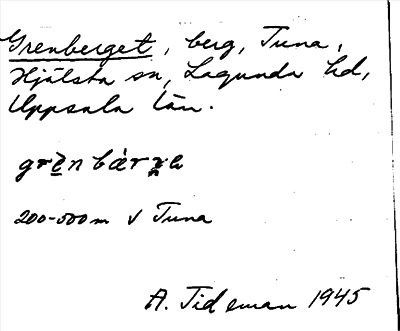 Grenberget, berg, Tuna,
Hjälsta sn, Lagunda hd,
Uppsala län.
200-500 m V Tuna
A. Tideman 1945